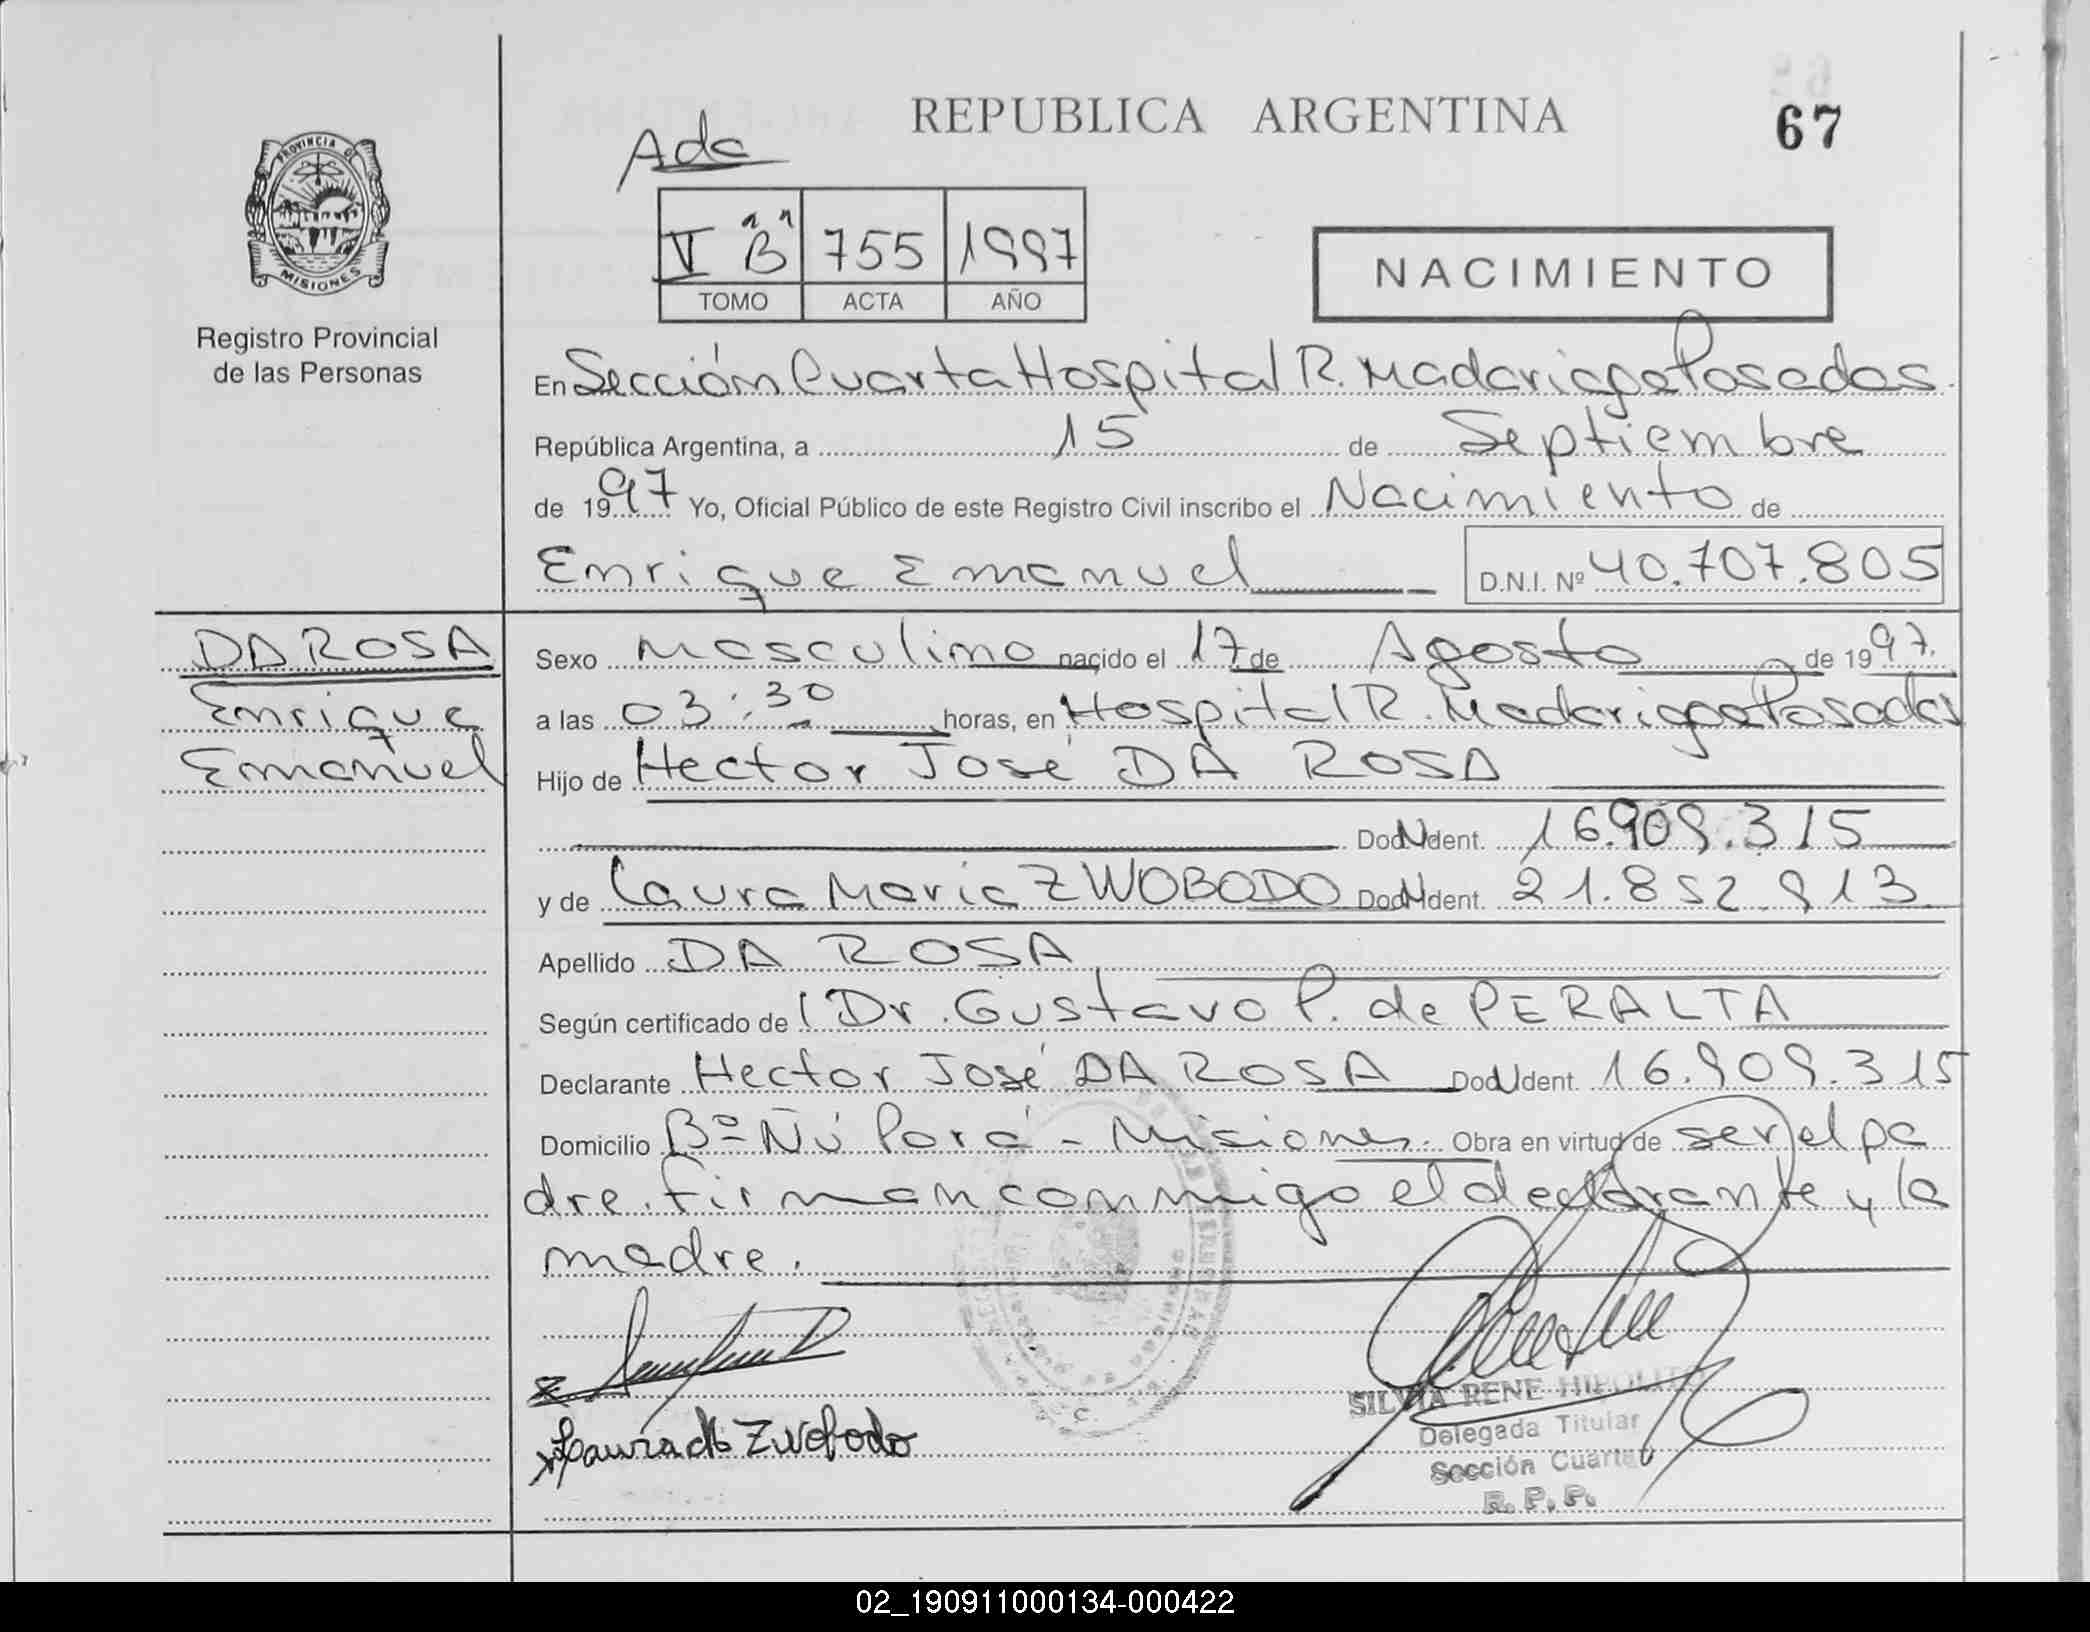 REPUBLICA ARGENTINA
67
Ada
PROVINCIA DE
MISIONES
V "B" 755 1997
TOMO ACTA AÑO
NACIMIENTO
Registro Provincial
de las Personas
En Sección Cuarta Hospital R. Madariaga Posadas.
República Argentina, a 15 de Septiembre
de 1997 Yo, Oficial Público de este Registro Civil inscribo el Nacimiento de
Enrique Emanuel D.N.I. Nº 40.707.805
DA ROSA
Enrique
Emanuel
Sexo Masculino nacido el 17 de Agosto de 1997.
a las 03:30 horas, en Hospital R. Madariaga Posadas
Hijo de Hector José DA ROSA
Doc N Ident. 16.909.315
y de Laura Maria ZWOBODO Doc N Ident. 21.852.913
Apellido DA ROSA
Según certificado de l Dr. Gustavo P. de PERALTA
Declarante Hector José DA ROSA Doc N Ident. 16.909.315
Domicilio Bº Ñú Porá - Misiones. Obra en virtud de ser el pa
dre. Firman conmigo el declarante y la
madre.
Laura de Zwobodo
SILVIA RENE HIPOLITO
Delegada Titular
Sección Cuarta
R. P. P.
02_190911000134-000422